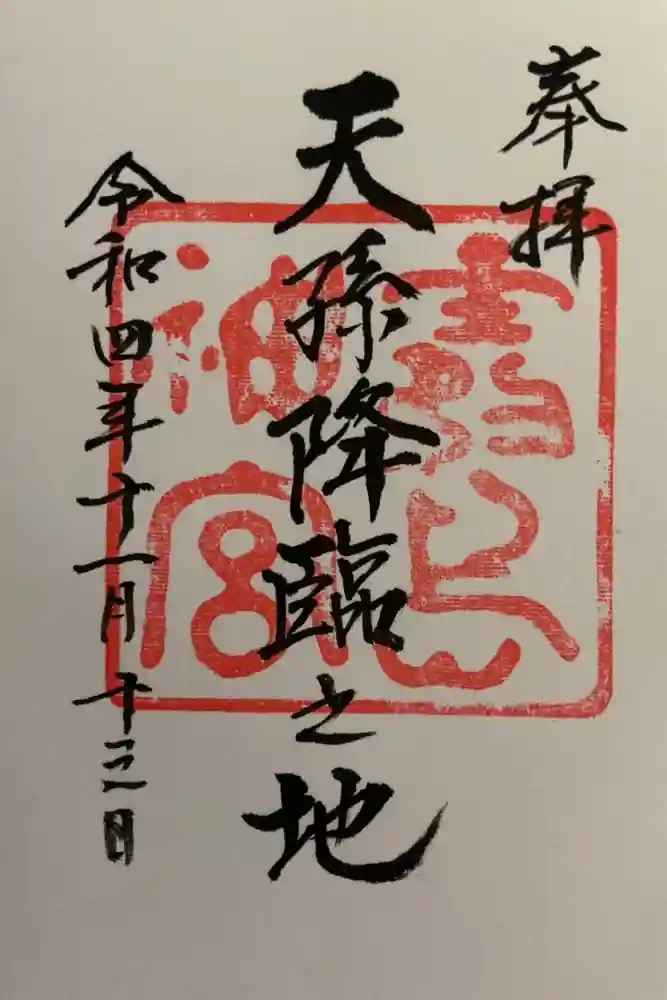 奉拝
天孫降臨之地
令和四年十一月十三日
神宮